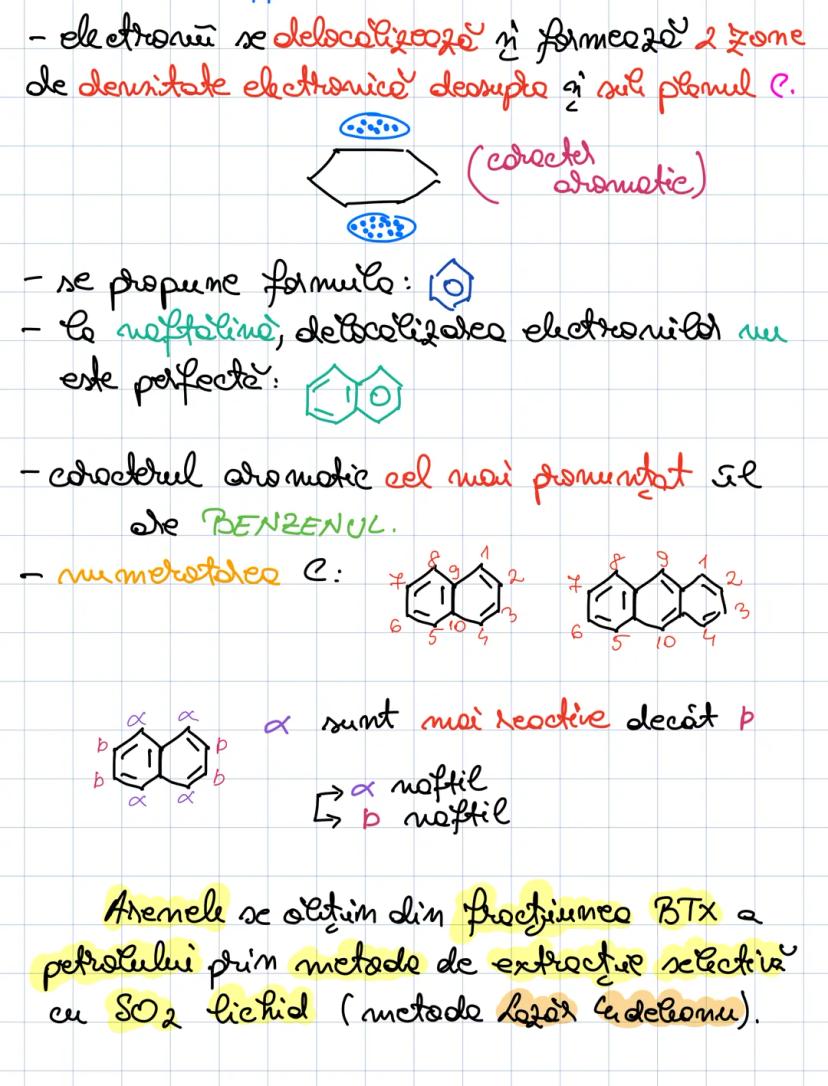 - electronii se delocalizează și formează 2 zone
de densitate electronică deasupra și sub planul C.
(caracter
aromatic)
- se propune formula:
- la naftalină, delocalizarea electronilor nu
este perfectă:
- caracterul aromatic cel mai pronunțat îl
are BENZENUL.
- numerotarea C:
8 9 1 8 9 1
7 2 7 2
6 3 6 3
5 10 4 5 10 4
α α
α sunt mai reactive decât β
β β
β β
α α
α naftil
β naftil
Arenele se obțin din fracțiunea BTX a
petrolului prin metoda de extracție selectivă
cu SO2 lichid (metoda Lazăr Edeleanu).